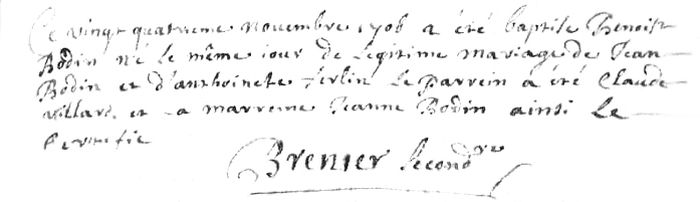 Ce vingt quatrieme novembre 1706 a été baptisé Benoist
Bodin né le même jour de legitime mariage de Jean
Bodin et d'anthoinete ferlin Le parrein a été Claude
villard et La marreine Jeanne Bodin ainsi Le
Certifie
Brenier second